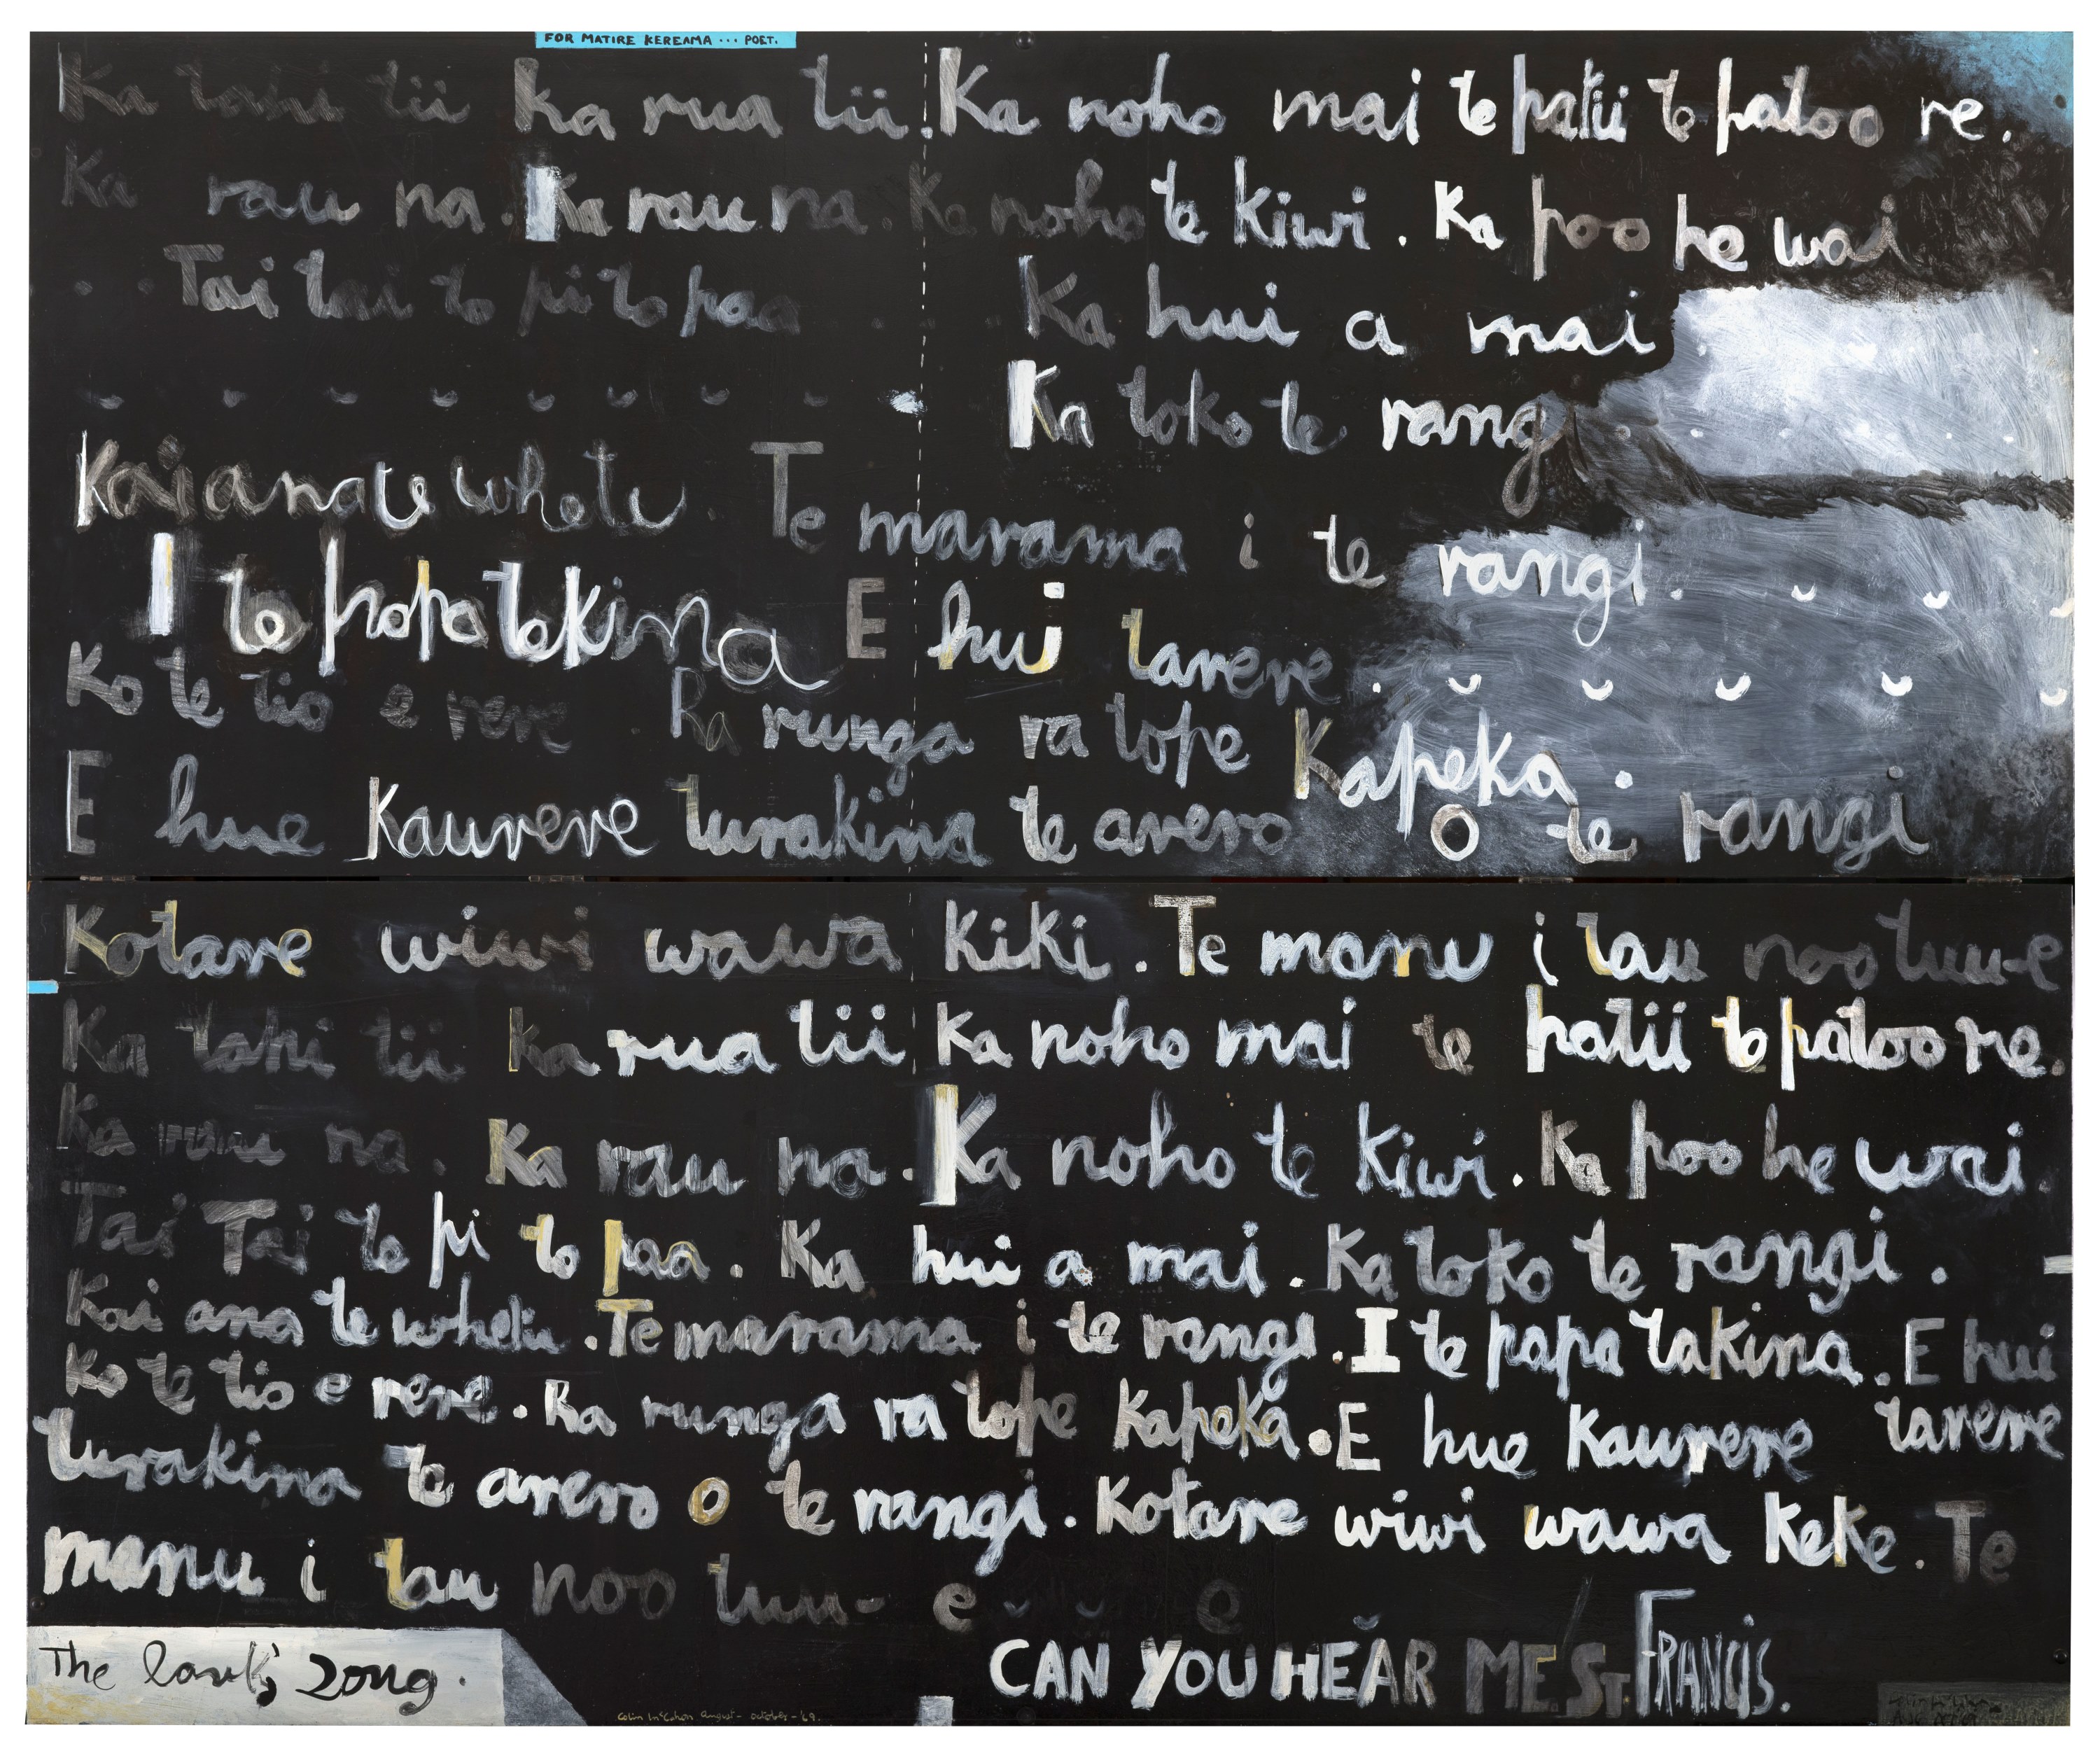 FOR MATIRE KEREAMA ... POET.
Ka tahi tii Ka rua tii. Ka noho mai te patii te patoo re.
Ka rau na. Ka rau na. Ka noho te kiwi. Ka poo he wai
. . Tai tai to pi to paa . . . Ka hui a mai
Ka toko te rangi
Kai ana te whetu. Te marama i te rangi.
I te popo tekina E hui tarere.
Ko te tio e rere Ra runga ra tope Kapeka.
E hue Kaurere turakina te arero O te rangi
Kotare wiwi wawa Kiki. Te manu i tau noo tuu-e
Ka tahi tii Ka rua tii Ka noho mai te patii te patoo re.
Ka rau na. Ka rau na. Ka noho te kiwi. Ka poo he wai.
Tai Tai to pi to paa. Ka hui a mai. Ka toko te rangi.
Kai ana te whetu. Te marama i te rangi. I te papa takina. E hui
Ko te tio e rere. Ra runga ra tope Kapeka. E hue Kaurere tarere
turakina te arero o te rangi. Kotare wiwi wawa Keke. Te
manu i tau noo tuu- e e
The lark's song.
CAN YOU HEAR ME. ST. FRANCIS.
Colin McCahon August - October - '69.